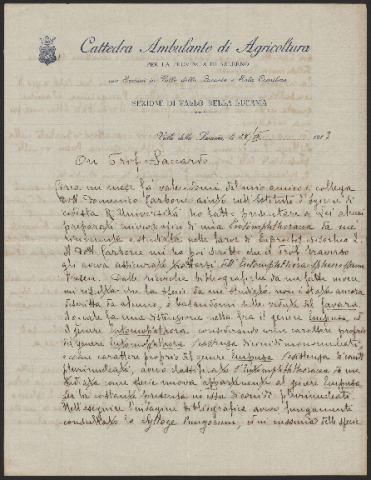 Cattedra Ambulante di Agricoltura
PER LA PROVINCIA DI SALERNO
con Sezioni in Vallo della Lucania e Sala Consilina
SEZIONE DI VALLO DELLA LUCANIA
Vallo della Lucania, li 191
On. Prof. Saccardo
Circa un mese fa valendomi del mio amico e collega
Dott. Domenico Carbone aiuto nell'Istituto d'Igiene di
codesta R. Università ho fatto presentare a Lei alcuni
preparati microscopici di una Entomophthoracea da me
rinvenuta e studiata nelle larve di
Il Dott. Carbone mi ha poi scritto che il Prof. Traverso
gli aveva assicurato trattarsi dell'Entomophthora sphaerosperma
Dalle ricerche bibliografiche da me fatte invece
mi risulta che la specie da me studiata non è stata ancora
descritta da alcuno, e basandomi sulle vedute del
fare una distinzione netta fra il genere Empusa ed
il genere Entomophthora considerando come carattere proprio
del genere Entomophthora l'esistenza di conidi mononucleati,
e come carattere proprio del genere Empusa l'esistenza di conidi
plurinucleati, avevo classificato l'Entomophthoracea da me
studiata come specie nuova appartenente al genere Empusa
per la costante presenza in essa di conidi plurinucleati
Nell'eseguire l'indagine bibliografica avevo lungamente
consultato la Sylloge Fungorum, e in nessuna delle specie